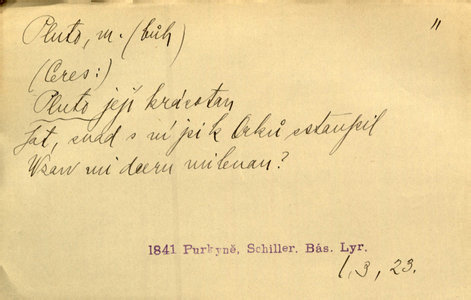 Pluto, m. (bůh) "
(Ceres:)
Pluto její krásotau
Jat, snad s ní pik Orků sstaupil
Wzaw mi dceru milenau?
1841 Purkyně, Schiller. Bás. Lyr.
1, 3, 23.